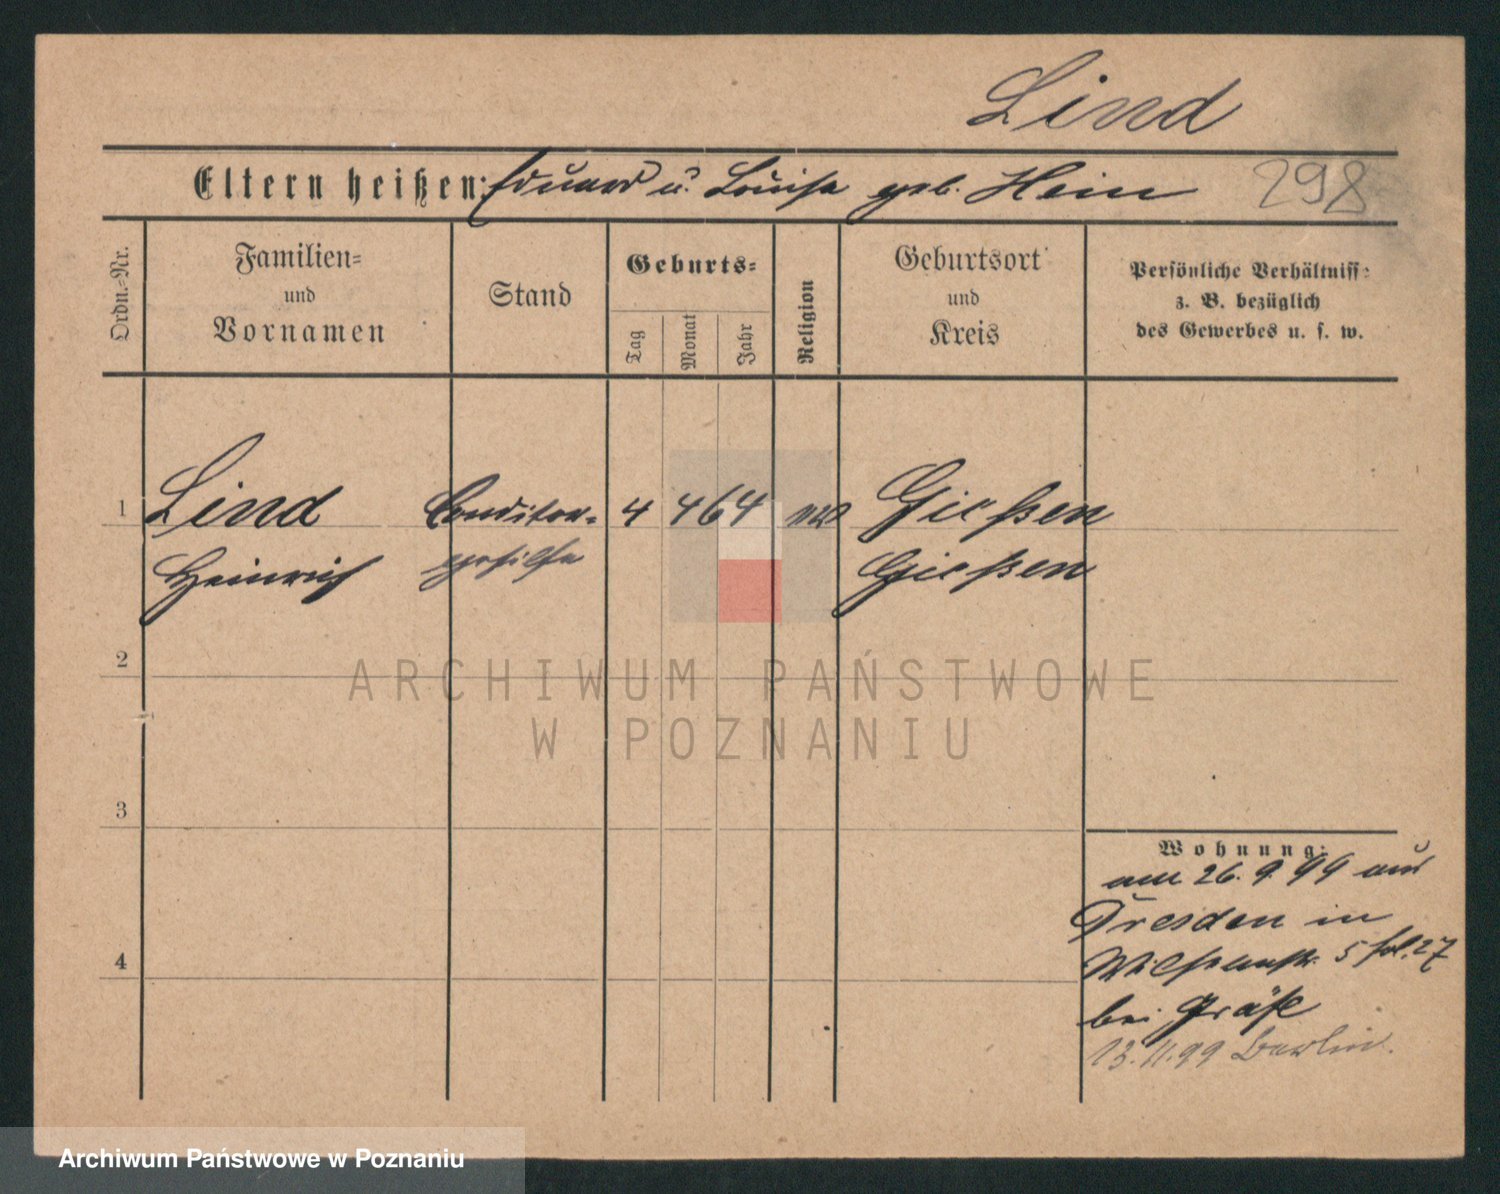 Lind
Eltern heißen: Eduard u. Louise geb. Hein 298
Ordn.=Nr.
Familien=
und
Vornamen
Stand
Geburts=
Tag
Monat
Jahr
Religion
Geburtsort
und
Kreis
Persönliche Verhältniss=
z. B. bezüglich
des Gewerbes u. s. w.
1 Lind Conditor- 4 4 64 Gießen
Heinrich gehilfe Gießen
2
ARCHIWUM PAŃSTWOWE
W POZNANIU
3
4
Wohnung:
am 26. 9. 99 aus
Dresden in
5 27
bei Gräfe
13. 11. 99 Berlin.
Archiwum Państwowe w Poznaniu